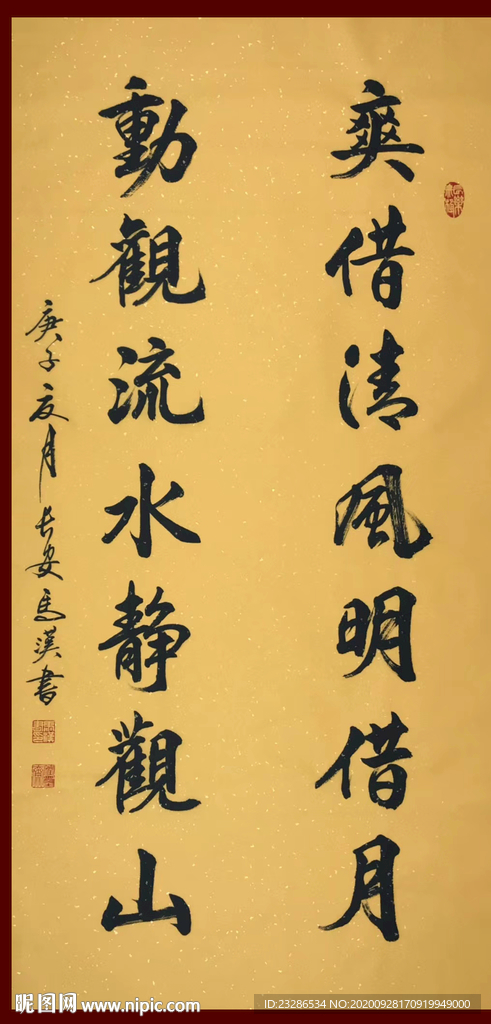 爽借清風明借月
動觀流水静觀山
庚子夏月長安馬漢書
昵图网 www.nipic.com
ID:23286534 NO:20200928170919949000